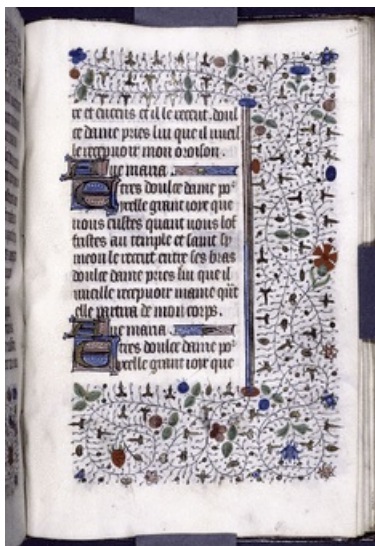 re et encens et il le receut. doul
ce dame pries lui que il vueil
le recepuoir mon oroison.
Aue maria.
E tres doulce dame po
icelle grant ioye que
vous eustes quant vous lof
fristes au temple et saint sy
meon le receut entre ses bras
doulce dame pries lui que il
vueille recepuoir mame qñt
elle partira de mon corps.
Aue maria.
E tres doulce dame po
icelle grant ioye que